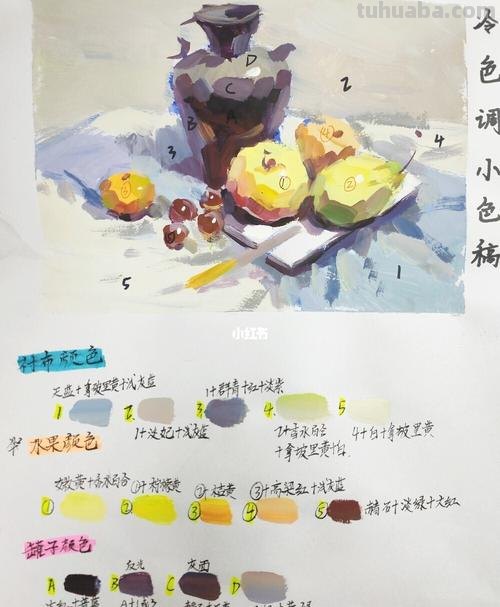 tuhuaba.com
冷色调小色稿
D
C
A
B
2
3
4
④
①
②
③
5
1
小红书
衬布颜色
天蓝+拿坡里黄+浅灰蓝
1+群青+红+淡紫
1
2
3
4
5
1+淡妃+浅灰蓝
4+白+拿坡里黄
+拿坡里黄+白
水果颜色
①+柠檬黄
②+桔黄
③+高粱红+浅灰蓝
①
②
③
④
⑤
赭石+淡绿+大红
罐子颜色
反光
灰面
A
B
C
D